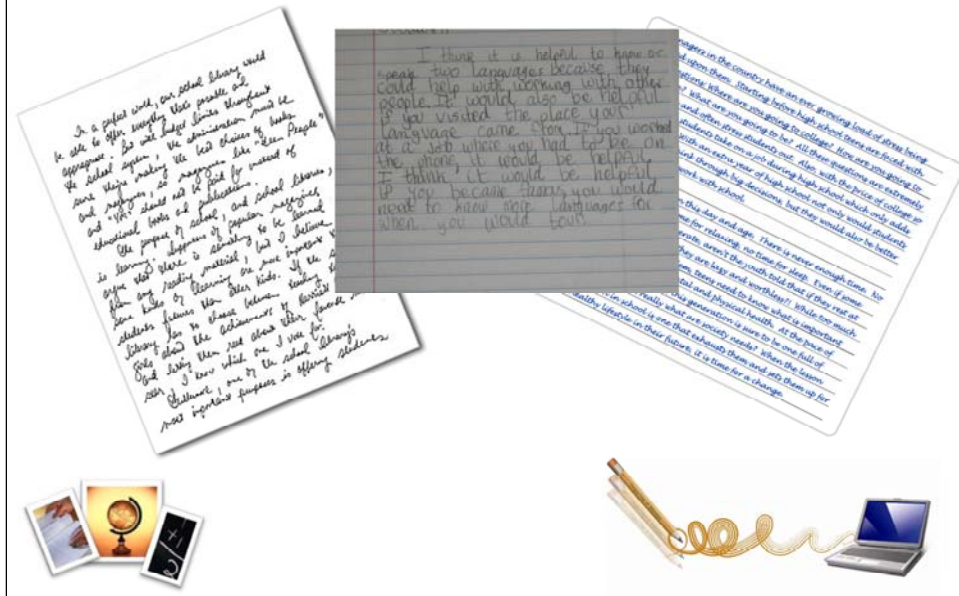 In a perfect world, our school library would
be able to offer everything that's possible and
appropriate. But with budget limits throughout
the school system, the administration must be
sure they're making the best choices of books
and magazines, so magazines like "Teen People"
and "YM" should not be paid for instead of
educational books and publications.
The purpose of school, and school libraries,
is learning.
argue that there is something to be learned
from any reading material, but I believe
some kinds of learning are more important to
students' futures than other kinds. If the
library has to choose between teaching
girls about the achievements of
and letting them read about their favorite
I know which one I vote for.
Furthermore, one of the school library's
most important purposes is offering students
I think it is helpful to know or
speak two languages because they
could help with working with other
people. It would also be helpful
if you visited the place your
language came from. If you worked
at a job where you had to be on
the phone, it would be helpful.
I think, it would be helpful
if you became famous, you would
need to know more languages for
when you would tour.
in the country have an ever growing load of stress being
upon them. Starting before high school teens are faced with
Where are you going to college? How are you going to
What are you going to be? All these questions are extremely
and often stress students out. Also, with the price of college so
students take on a job during high school which only adds
with an extra year of high school not only would students
through big decisions, but they would also be better
work with school.
this day and age. There is never enough time. No
time for relaxing, no time for sleep. Even if some
aren't the youth told that if they rest at
they are lazy and worthless!! While too much
teens need to know what is important
and physical health. At the pace of
this generation is sure to be one full of
really what are society needs? When the lesson
in school is one that exhausts them and sets them up for
healthy lifestyle in their future, it is time for a change.